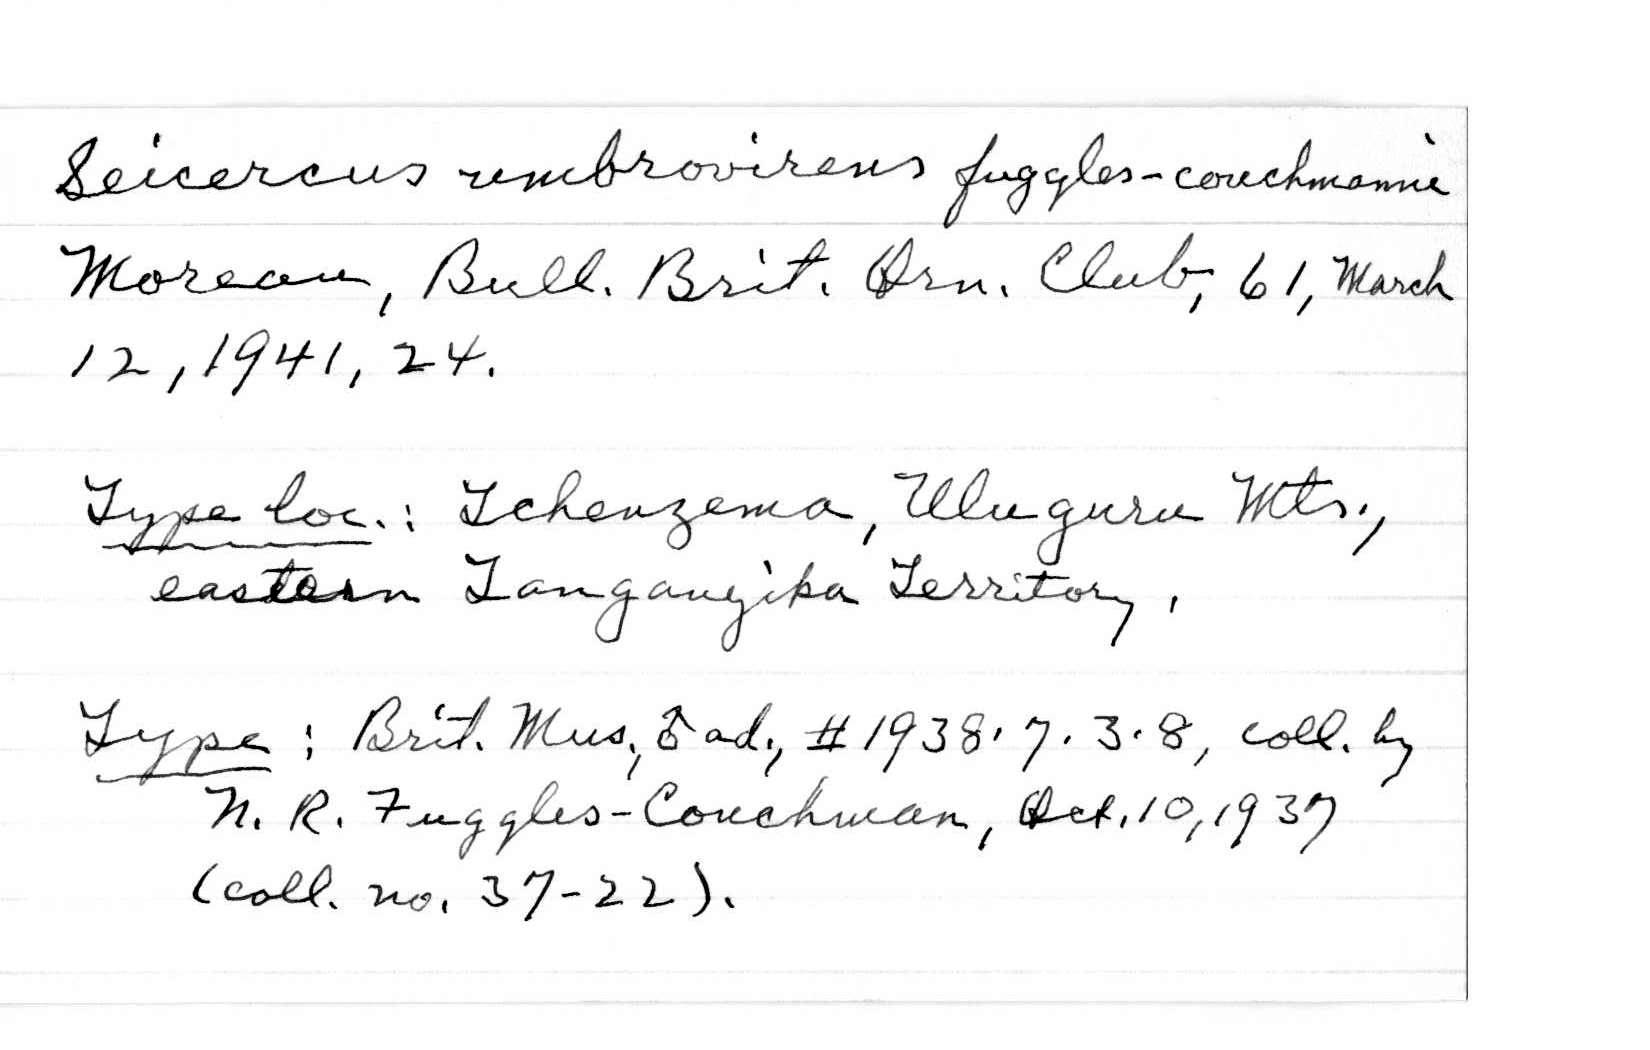 Seicercus umbrovirens fuggles-couchmanni
Moreau, Bull. Brit. Orn. Club, 61, March
12, 1941, 24.
Type loc.: Tchenzema, Uluguru Mts.,
eastern Tanganyika Territory.
Type: Brit. Mus., ♂ ad., #1938.7.3.8, coll. by
N. R. Fuggles-Couchman, Oct. 10, 1937
(coll. no. 37-22).